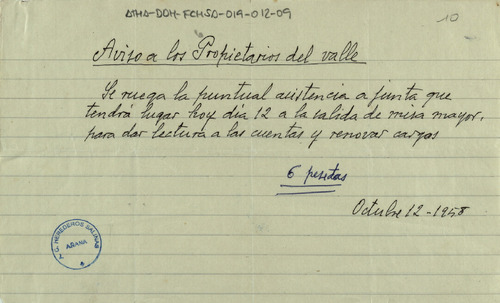 ATHA-DOH-FCHSA-019-012-09
10
Aviso a los Propietarios del valle
Se ruega la puntual asistencia a junta que
tendrá lugar hoy día 12 a la salida de misa mayor,
para dar lectura a las cuentas y renovar cargos
6 pesetas
Octubre 12-1958
T. G. HEREDEROS SALINAS
AÑANA